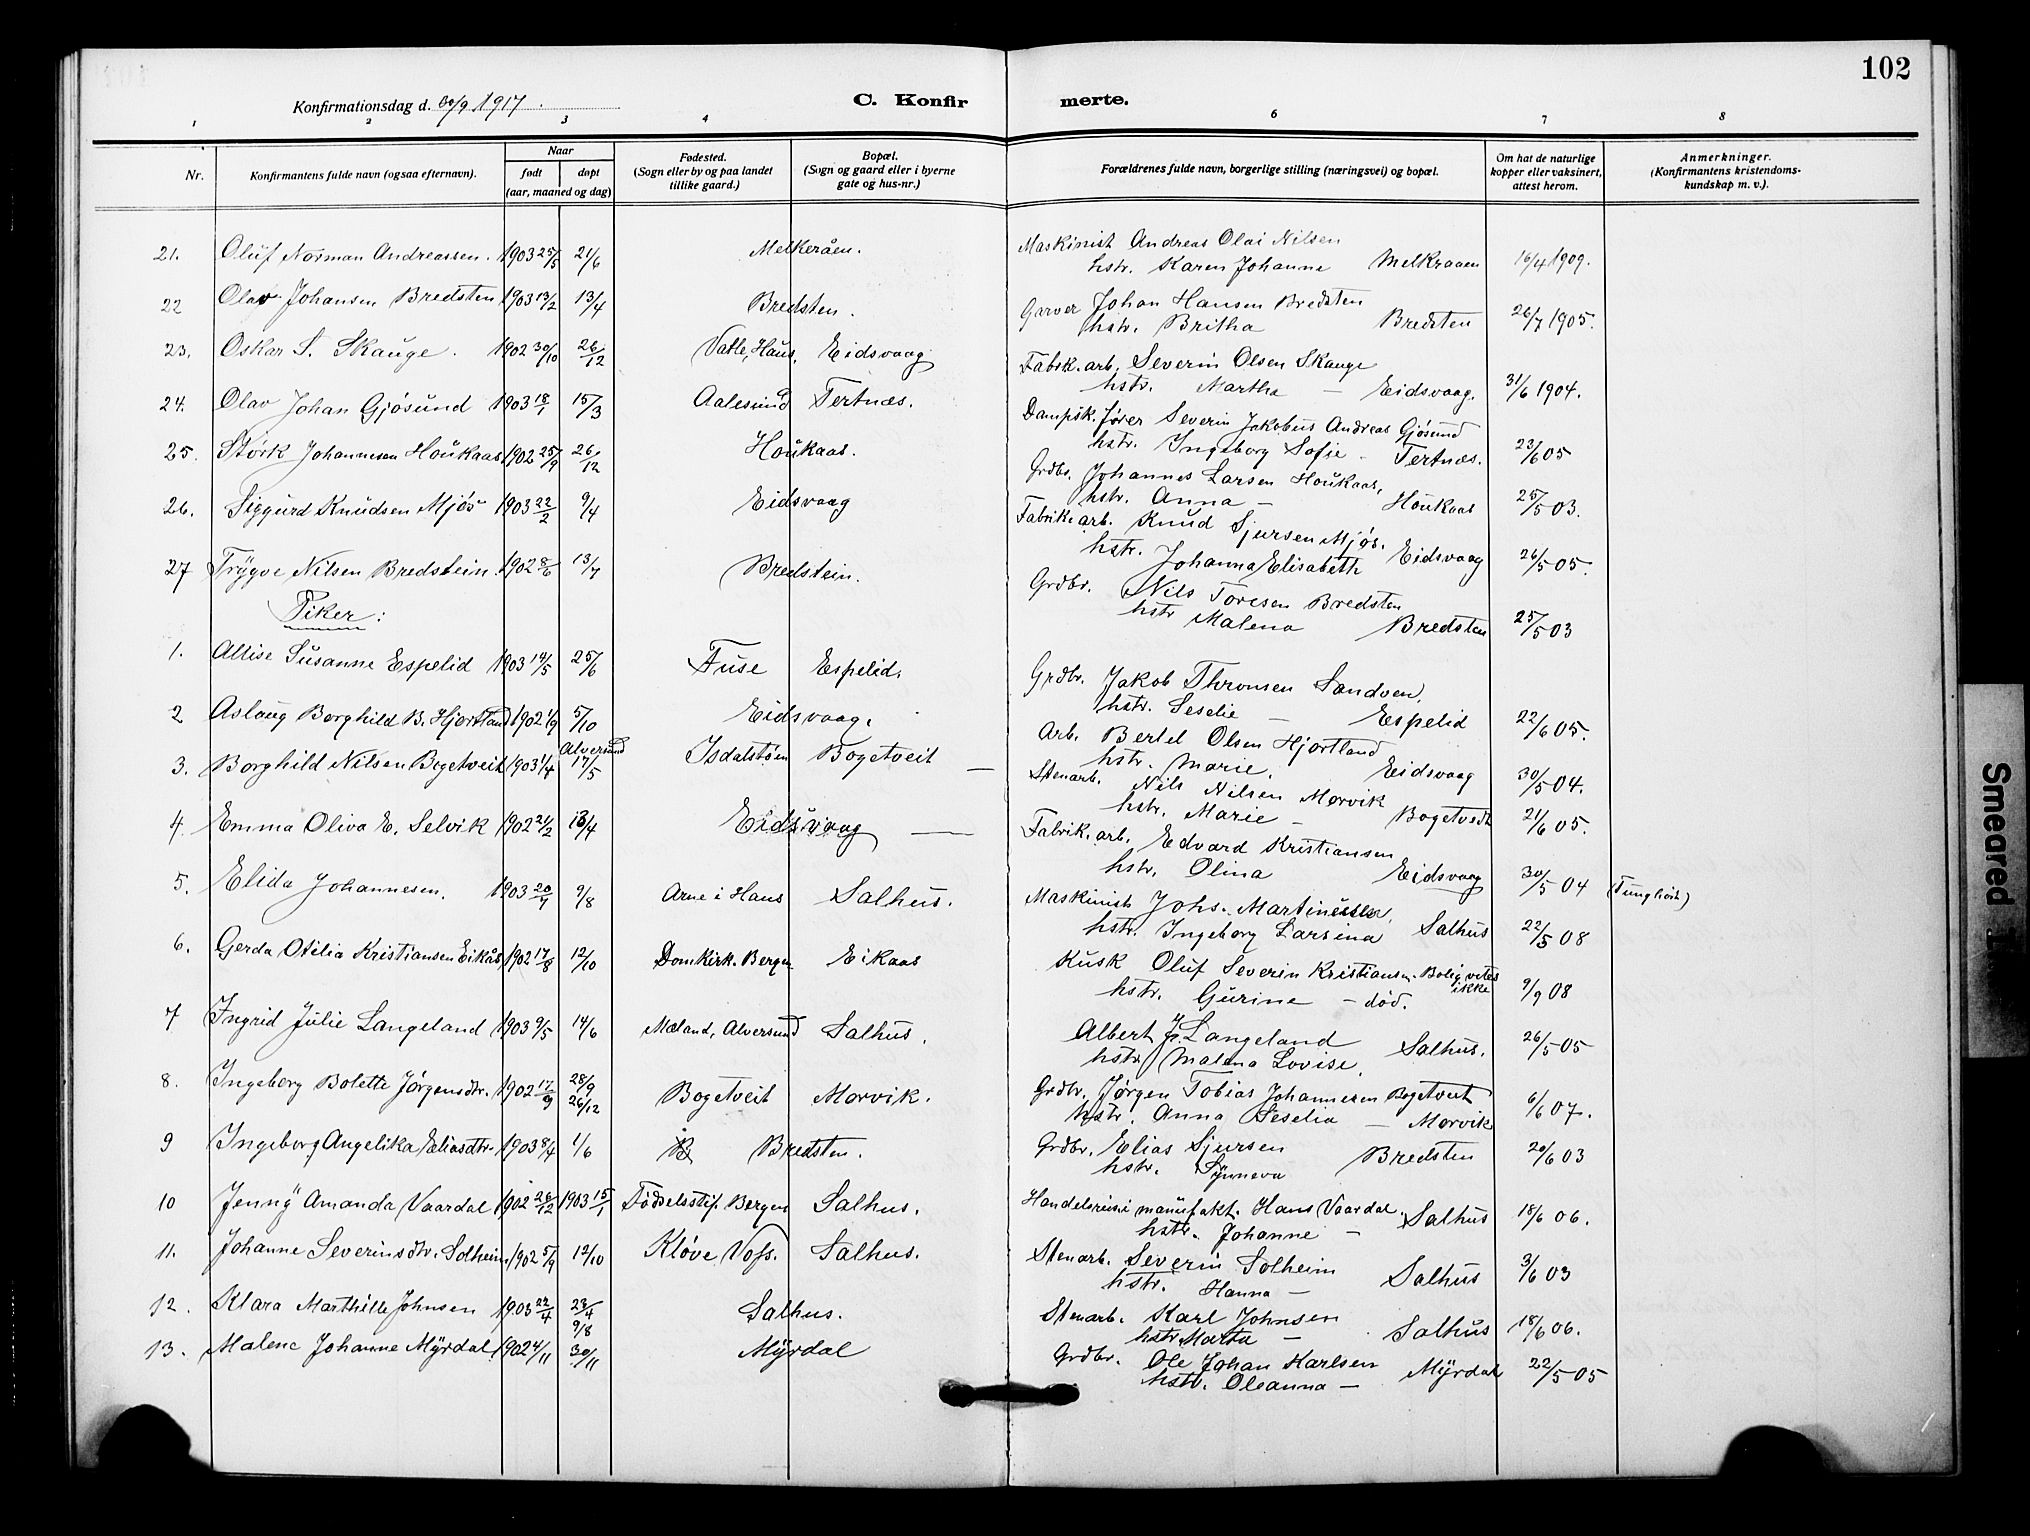 102
Konfirmationsdag d. 30/9 1917.
C. Konfirmerte.
1 2 3 4 6 7 8
Nr. Konfirmantens fulde navn (ogsaa efternavn). Naar født døpt (aar, maaned og dag) Fødested. (Sogn eller by og paa landet tillike gaard.) Bopæl. (Sogn og gaard eller i byerne gate og hus-nr.) Forældrenes fulde navn, borgerlige stilling (næringsvei) og bopæl. Om hat de naturlige kopper eller vaksinert, attest herom. Anmerkninger. (Konfirmantens kristendomskundskap m. v.).
21. Oluf Norman Andreassen. 1903 25/5 21/6 Melkeråen. Maskinist Andreas Olai Nilsen
hstr. Karen Johanne Melkraaen 16/4 1909.
22 Olav Johansen Bredsten 1903 13/2 13/4 Bredsten. Garver Johan Hansen Bredsten
hstr. Britha Bredsten 26/7 1905.
23. Oskar S. Skauge. 1902 30/10 26/12 Valle, Haus. Eidsvaag Fabrk. arb. Severin Olsen Skauge
hstr. Martha — Eidsvaag. 31/6 1904.
24. Olav Johan Gjøsund 1903 18/1 15/3 Aalesund Tertnæs. Dampsk. fører Severin Jakobus Andreas Gjøsund
hstr. Ingeborg Sofie - Tertnæs. 23/6 05
25. Størk Johannesen Houkaas 1902 25/9 26/12 Houkaas. Grdbr. Johannes Larsen Houkaas,
hstr. Anna — Houkaas 25/5 03.
26. Siggurd Knudsen Mjøs 1903 22/2 9/4 Eidsvaag Fabrik. arb. Knud Sjursen Mjøs.
hstr. Johanna Elisabeth Eidsvaag 26/5 05.
27 Trygve Nilsen Bredstein. 1902 8/6 13/7 Bredstein. Grdbr. Nils Toresen Bredsten
hstr Malena Bredsten 25/5 03
Piker:
1. Allise Susanne Espelid 1903 14/5 25/6 Fuse Espelid. Grdbr. Jakob Thronsen Sandven,
hstr. Seselie — Espelid 22/6 05.
2 Aslaug Borghild B. Hjortland 1902 1/9 5/10 Eidsvaag. Arb. Bertel Olsen Hjortland
hstr. Marie. Eidsvaag 30/5 04.
3. Borghild Nilsen Bogetveit 1903 1/4 Alversund 17/5 Isdalstøen Bogetveit — Stenarb. Nils Nilsen Morvik
hstr. Marie — Bogetvedt 21/6 05.
4. Emma Oliva E. Selvik 1902 21/2 13/4 Eidsvaag — Fabrik. arb. Edvard Kristiansen
hstr. Olina Eidsvaag 30/5 04 (Tunghørt)
5. Elida Johannesen. 1903 20/7 9/8 Arne i Haus Salhus. Maskinist Johs. Martinussen,
hstr. Ingeborg Larsina Salhus 22/5 08
6. Gerda Otilia Kristiansen Eikås 1902 17/8 12/10 Domkirk. Bergen Eikaas Kusk Oluf Severin Kristiansen. Bolig vites ikke
hstr. Gurine — død. 9/9 08
7 Ingrid Julie Langeland 1903 9/5 14/6 Mæland, Alversund Salhus. Albert J. Langeland
hstr. Malena Lovise. Salhus. 26/5 05
8. Ingeborg Bolette Jørgensdtr. 1902 17/9 28/9 26/12 Bogetveit Morvik. Grdbr. Jørgen Tobias Johannesen Bogetveit
hstr. Anna Seselia — Morvik 6/6 07.
9 Ingeborg Angelika Eliasdtr. 1903 8/4 1/6 Bredsten. Grdbr. Elias Sjursen
hstr. Synneva Bredsten 20/6 03
10 Jenny Amanda Vaardal 1902 26/12 1903 15/1 Fødselsstif. Bergen Salhus. Handelsreis. i manufakt. Hans Vaardal.
hstr. Johanne — Salhus 18/6 06.
11. Johanne Severinsdtr. Solheim 1902 5/9 12/10 Kløve Voss. Salhus. Stenarb. Severin Solheim
hstr. Hanna — Salhus 3/6 03
12. Klara Marthille Johnsen 1903 22/4 23/4 9/8 Salhus. Stenarb. Karl Johnsen
hstr. Marta — Salhus 18/6 06.
13. Malene Johanne Myrdal 1902 4/11 30/11 Myrdal Grdbr. Ole Johan Karlsen
hstr. Oleanna — Myrdal 22/5 05
Smeared